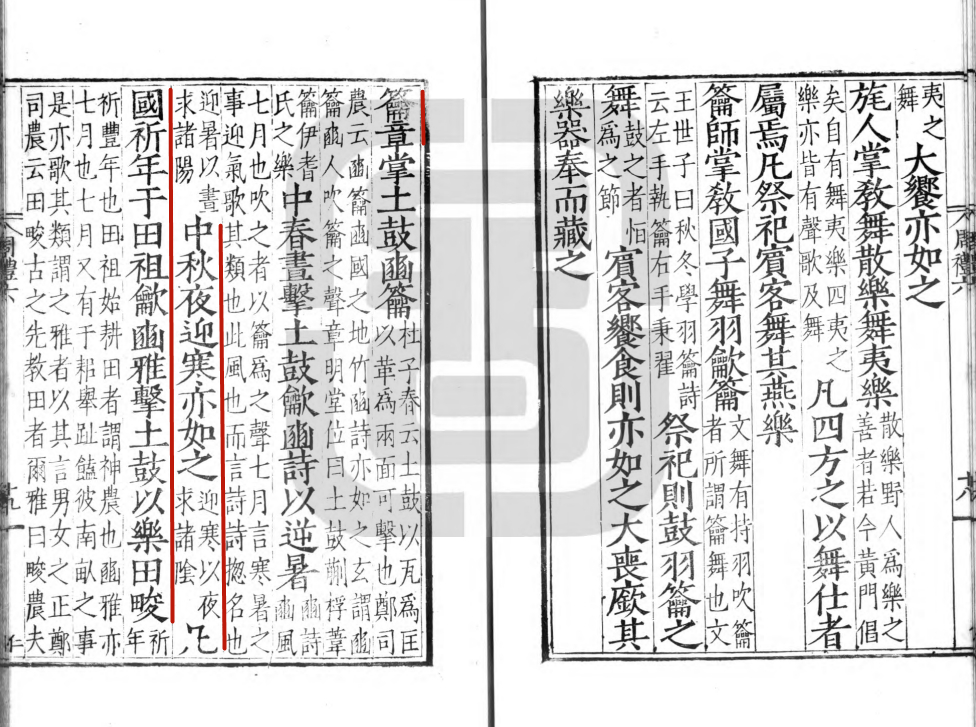 夷之舞大饗亦如之
旄人掌敎舞散樂舞夷樂散樂野人爲樂之善者若今黃門倡
矣自有舞夷樂四夷之樂亦皆有聲歌及舞凡四方之以舞仕者
屬焉凡祭祀賓客舞其燕樂
籥師掌敎國子舞羽龡籥文舞有持羽吹籥者所謂籥舞也文
王世子曰秋冬學羽籥詩云左手執籥右手秉翟祭祀則鼓羽籥之
舞鼓之者恒爲之節賓客饗食則亦如之大喪廞其
樂器奉而藏之
籥章掌土鼓豳籥杜子春云土鼓以瓦爲匡以革爲兩面可擊也鄭司
農云豳籥豳國之地竹豳詩亦如之玄謂豳籥豳人吹籥之聲章明堂位曰土鼓蒯桴葦
籥伊耆氏之樂中春晝擊土鼓龡豳詩以逆暑豳詩豳風
七月也吹之者以籥爲之聲七月言寒暑之事迎氣歌其類也此風也而言詩詩揔名也
迎暑以晝求諸陽中秋夜迎寒亦如之迎寒以夜求諸陰凡
國祈年于田祖龡豳雅擊土鼓以樂田畯祈年
祈豐年也田祖始耕田者謂神農也豳雅亦七月也七月又有于耜舉趾饁彼南畝之事
是亦歌其類謂之雅者以其言男女之正鄭司農云田畯古之先教田者爾雅曰畯農夫